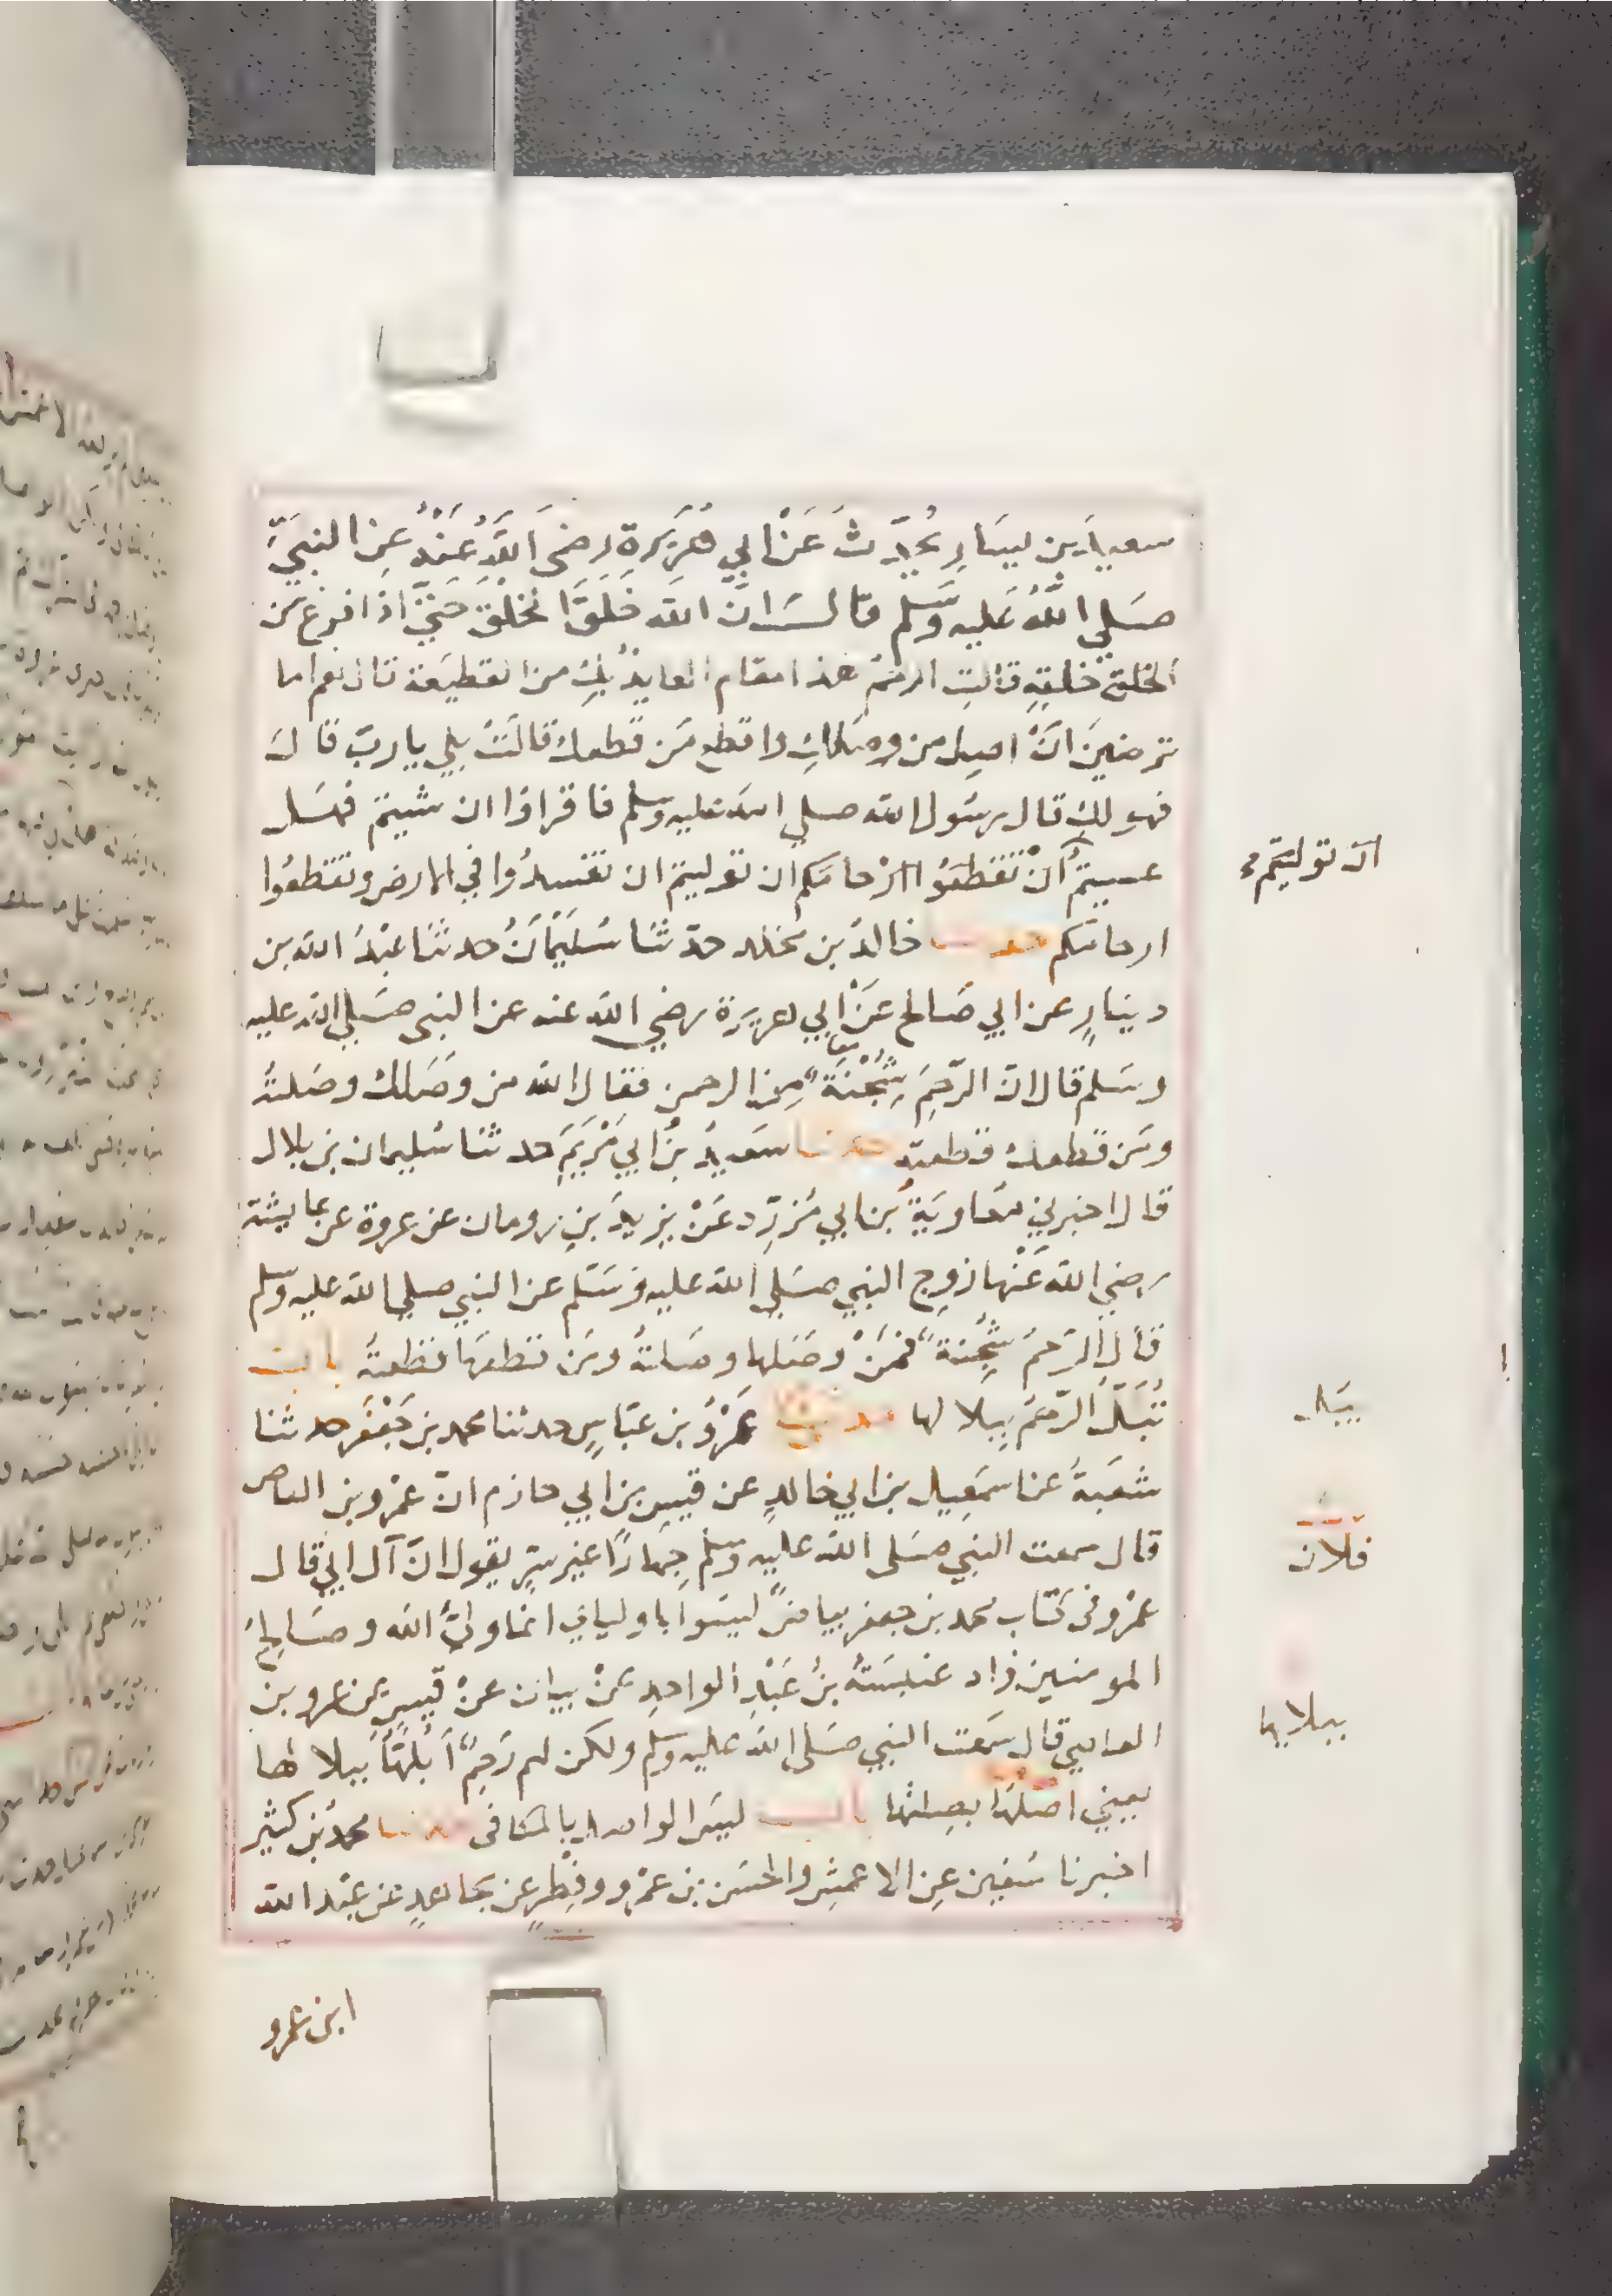 سعيدَ بن يسَارِ يُحدّثُ عَنْ ابِي هُرَيَرةِ رضىَ اللّهُ عَنْهُ عنِ النبيّ
صَلي اللّهُ عَليه وَسَلم قالَ انّ الله خَلَقَ الخلْقَ حَتيّ اذا فرغ مَن
الخلقِ خلقِهِ قالتِ الرحُم هذا مقام العايذ بِكَ من القطيَعة قال نعم اما
ترضينَ انْ اصِل من وصَلكِ واقطع مَن قطعك قالَتْ بلي يا ربّ قالَ
فهو لكِ قال رسَول الله صلي الله عليه وسلم فاقراوا ان شيتم فهَل
عسيتمُ اَنْ تقَطعُوا ارْحامَكم ان توليتم ان تفسدُوا في الارض وتقطعُوا
ارحامَكم حدثنا خالدُ بن مخلد حدّثنَا سُليَمَانُ حدثنَا عبْدُ الله بن
دينارٍ عن ابي صَالح عَنْ ابي هريرَة رضي الله عنه عن النبى صَلي الله عليه
وسَلم قال انّ الرّحِمَ شُِجْنَة مِن الرحمنِ فقال الله من وصَلك وصَلتهُ
ومَن قطعك قطعته حدثنا سَعيدُ بنُ ابي مَرْيَمَ حدثنا سُليمان بن بلال
قال اخبرني مُعاويَةُ بنُ ابي مُزرِّد عَنْ يزيدَ بنِ رومان عن عروة عن عايشة
رضي الله عَنْها زوجِ النبي صَلي الله عليه وسَلم عن النبي صلي الله عليه وسلم
قال الرَحمُ شُِجنة فمَنْ وصَلها وصَلتهُ ومَن قطعهَا قطعتهُ بابُ
تُبَلّ الرّحمُ ببِلالها حدثنا عَمْرُو بن عبَاسٍ حدثنا محمد بن جَعْفَر حدثنا
شعَبةُ عن اسمَعِيل بن ابي خالدٍ عن قيسِ بن ابي حازم انّ عمْرو بن العاص
قال سمعت النبي صَلى الله عليه وسلم جِهارًا غيرَ سرٍ يقول انّ آل ابي قال
عمْرو فى كتَاب محمد بن جعفر بياضٌ ليسَوا باوليايِ انما وليُّ الله وصَالحُ
المومنين زاد عنبسَةُ بنُ عَبْدِ الواحدِ عنْ بيان عنْ قيسٍ عن عمرو بن
العاصي قال سَمعت النبي صَلي الله عليه وسلم ولكن لهم رَحِمٌ اَبُلهَّا ببلالها
يعني اصلهَا بصِلتها بابُ ليسَ الواصل بالمكافى حدثنا محمدُ بن كثير
اخبرنا سُفين عن الاعمشِ والحسَن بن عمْرو وفِطْرٍ عن مجاهدٍ عن عبْد الله
ان توليتم
يبَل
فلان
ببلايها
ابن عمرو